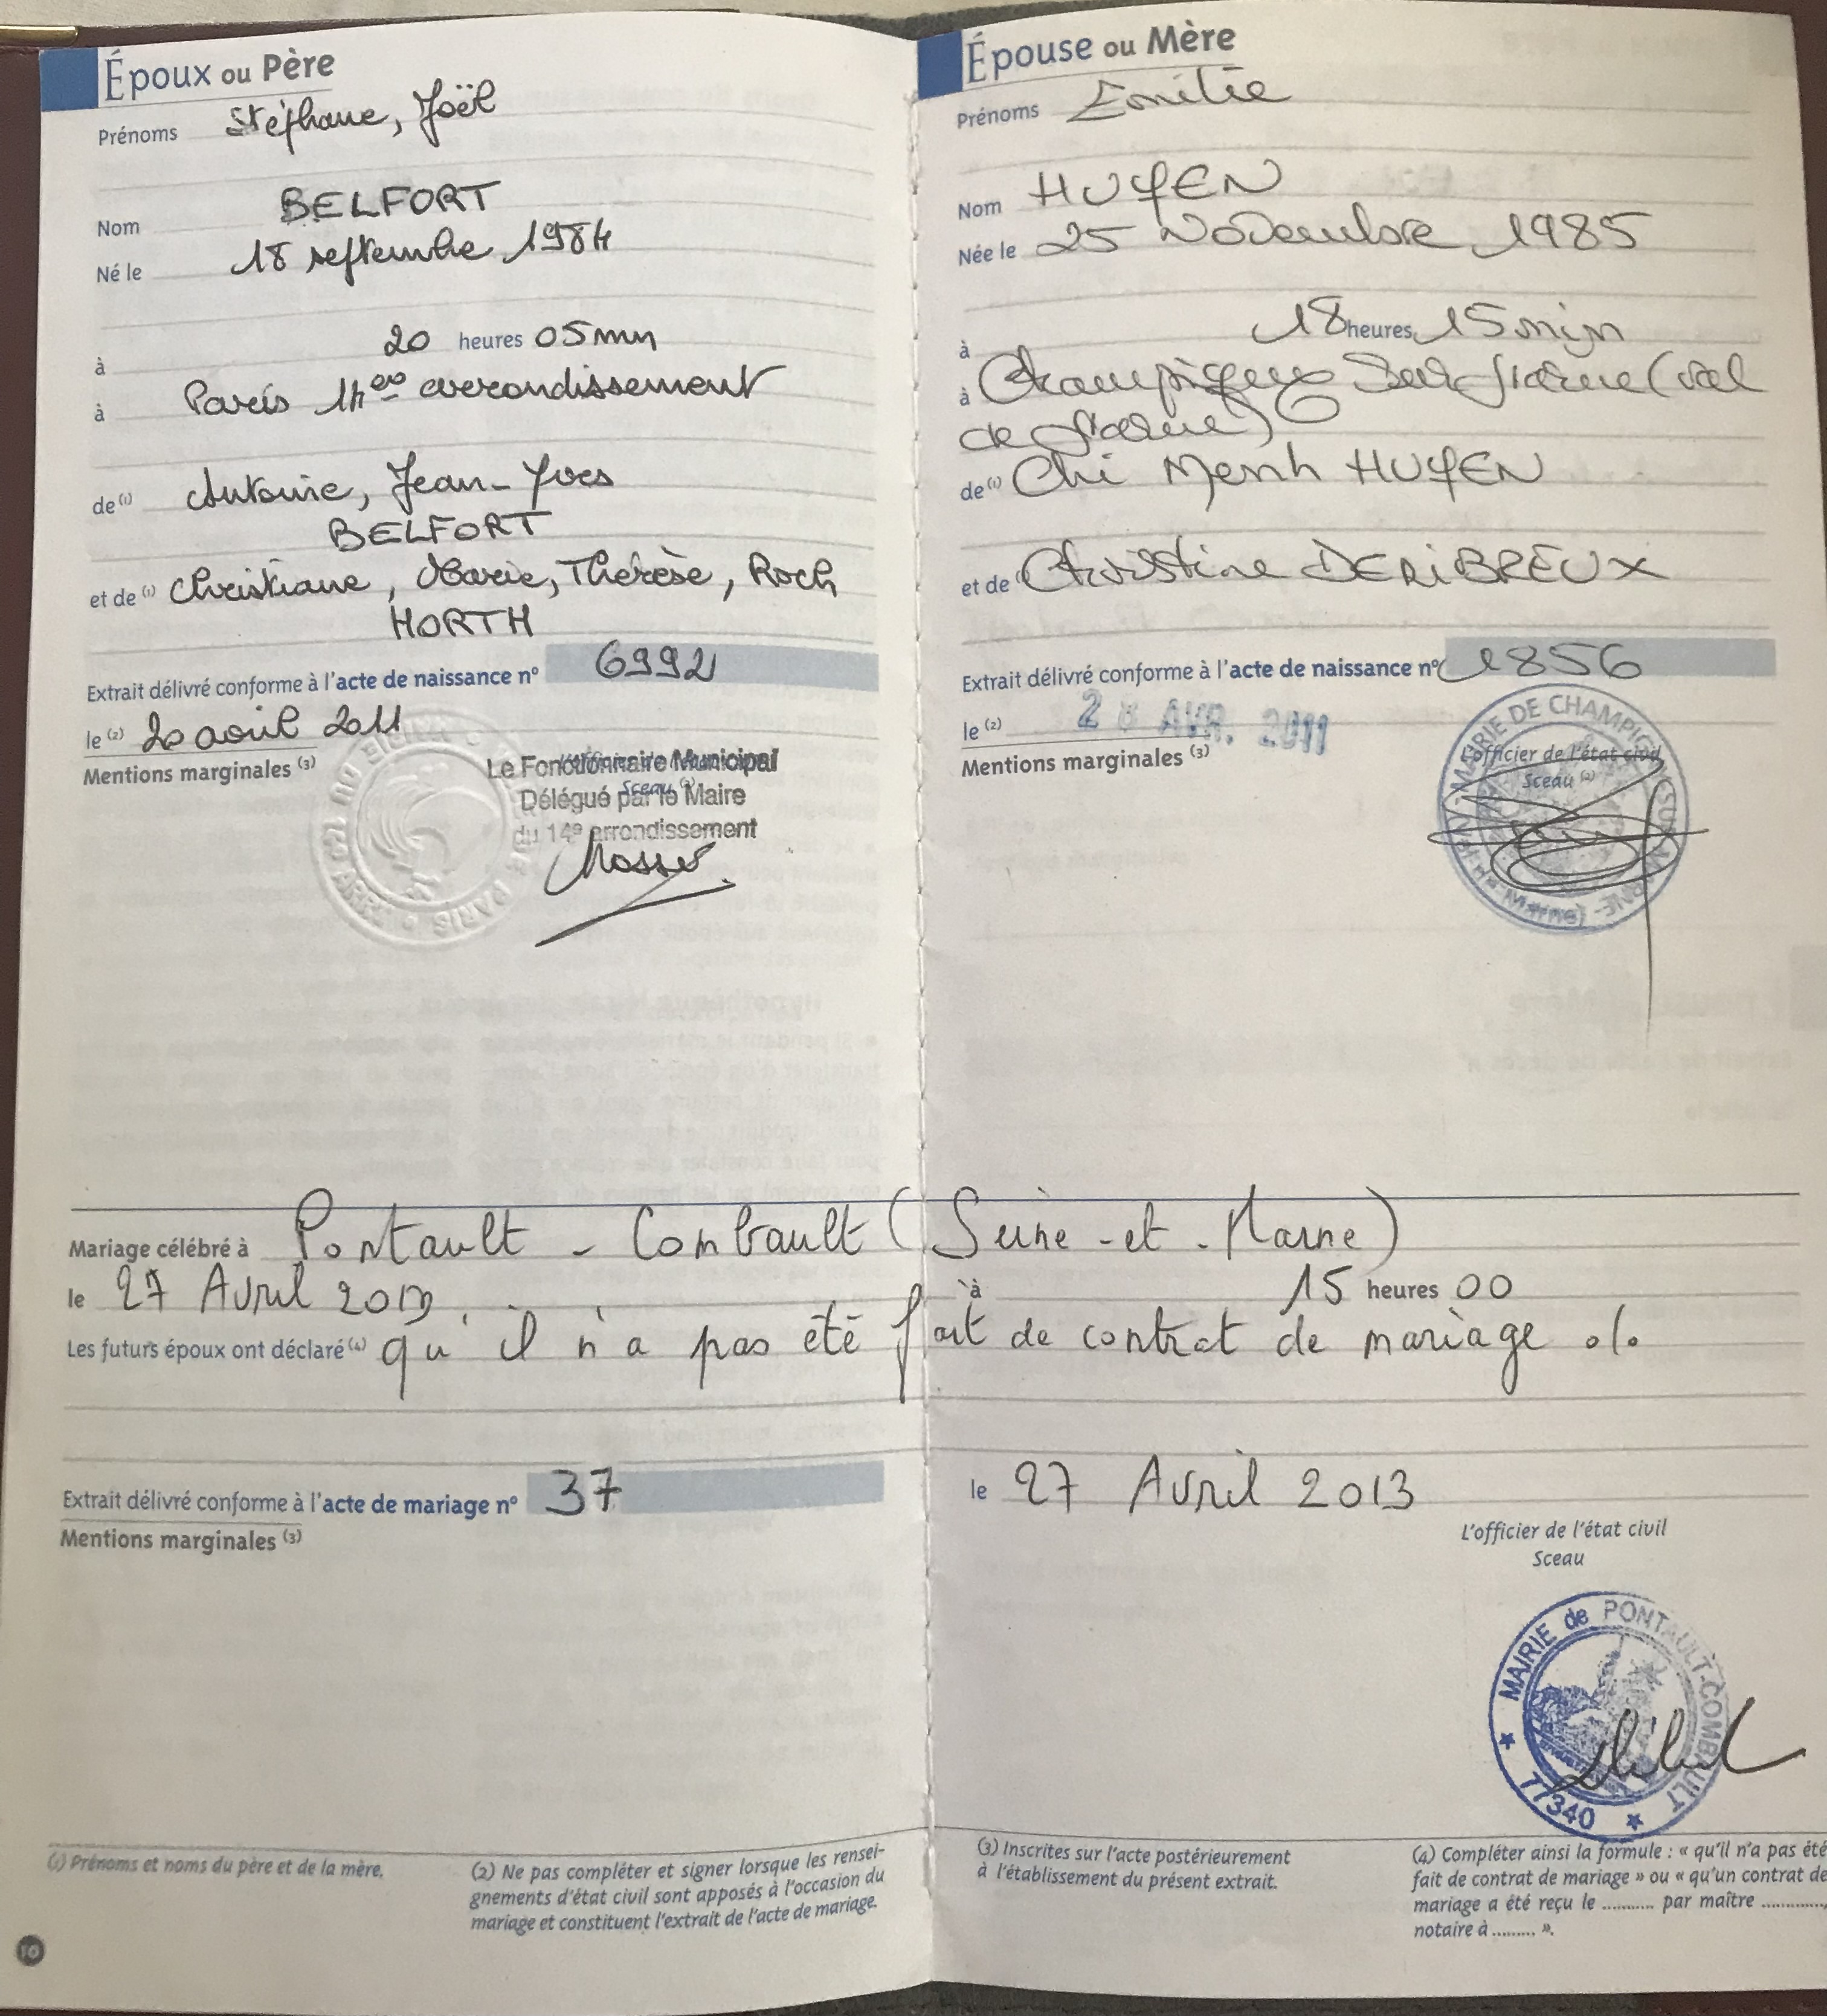 Époux ou Père
Prénoms Stéphane, Joël
Nom BELFORT
Né le 18 septembre 1984
à 20 heures 05 mn
à Paris 14ème arrondissement
de (1) Antoine, Jean-Yves
BELFORT
et de (1) Christiane, Marie, Thérèse, Roch
HORTH
Extrait délivré conforme à l'acte de naissance n° 6992
le (2) 20 août 2011
Mentions marginales (3)
L'officier de l'état civil
Sceau (2)
Le Fonctionnaire Municipal
Délégué par le Maire
du 14e arrondissement
Épouse ou Mère
Prénoms Emilie
Nom HUYEN
Née le 25 Novembre 1985
à 18 heures 15 min
à Champigny Sur Marne (Val
de Marne)
de (1) Chi Menh HUYEN
et de (1) Christine DERIBREUX
Extrait délivré conforme à l'acte de naissance n° 1856
le (2) 28 AVR. 2011
Mentions marginales (3)
L'officier de l'état civil
Sceau (2)
MAIRIE DE CHAMPIGNY SUR MARNE
Mariage célébré à Pontault - Combault (Seine - et - Marne)
le 27 Avril 2013, à 15 heures 00
Les futurs époux ont déclaré (4) qu'il n'a pas été fait de contrat de mariage ./.
Extrait délivré conforme à l'acte de mariage n° 37
le 27 Avril 2013
Mentions marginales (3)
L'officier de l'état civil
Sceau
MAIRIE de PONTAULT-COMBAULT
77340
(1) Prénoms et noms du père et de la mère.
(2) Ne pas compléter et signer lorsque les rensei-
gnements d'état civil sont apposés à l'occasion du
mariage et constituent l'extrait de l'acte de mariage.
(3) Inscrites sur l'acte postérieurement
à l'établissement du présent extrait.
(4) Compléter ainsi la formule : « qu'il n'a pas été
fait de contrat de mariage » ou « qu'un contrat de
mariage a été reçu le ........... par maître .............,
notaire à ......... ».
10